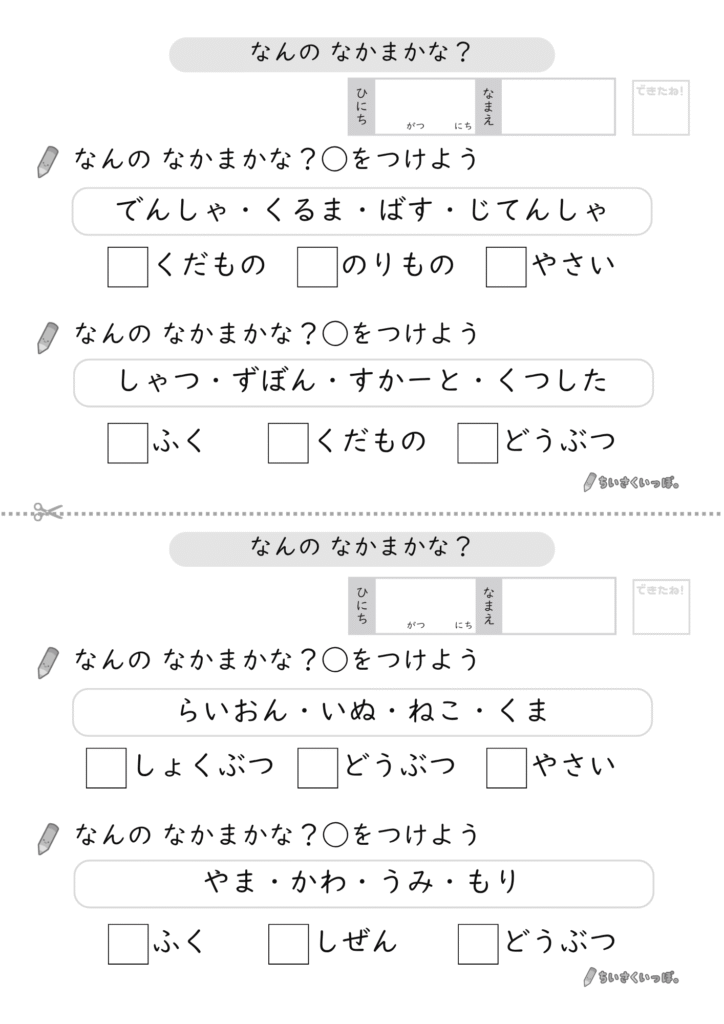 なんの なかまかな？
ひにち
がつ にち
なまえ
できたね!
なんの なかまかな？○をつけよう
でんしゃ・くるま・ばす・じてんしゃ
くだもの のりもの やさい
なんの なかまかな？○をつけよう
しゃつ・ずぼん・すかーと・くつした
ふく くだもの どうぶつ
ちいさくいっぽ。
なんの なかまかな？
ひにち
がつ にち
なまえ
できたね!
なんの なかまかな？○をつけよう
らいおん・いぬ・ねこ・くま
しょくぶつ どうぶつ やさい
なんの なかまかな？○をつけよう
やま・かわ・うみ・もり
ふく しぜん どうぶつ
ちいさくいっぽ。